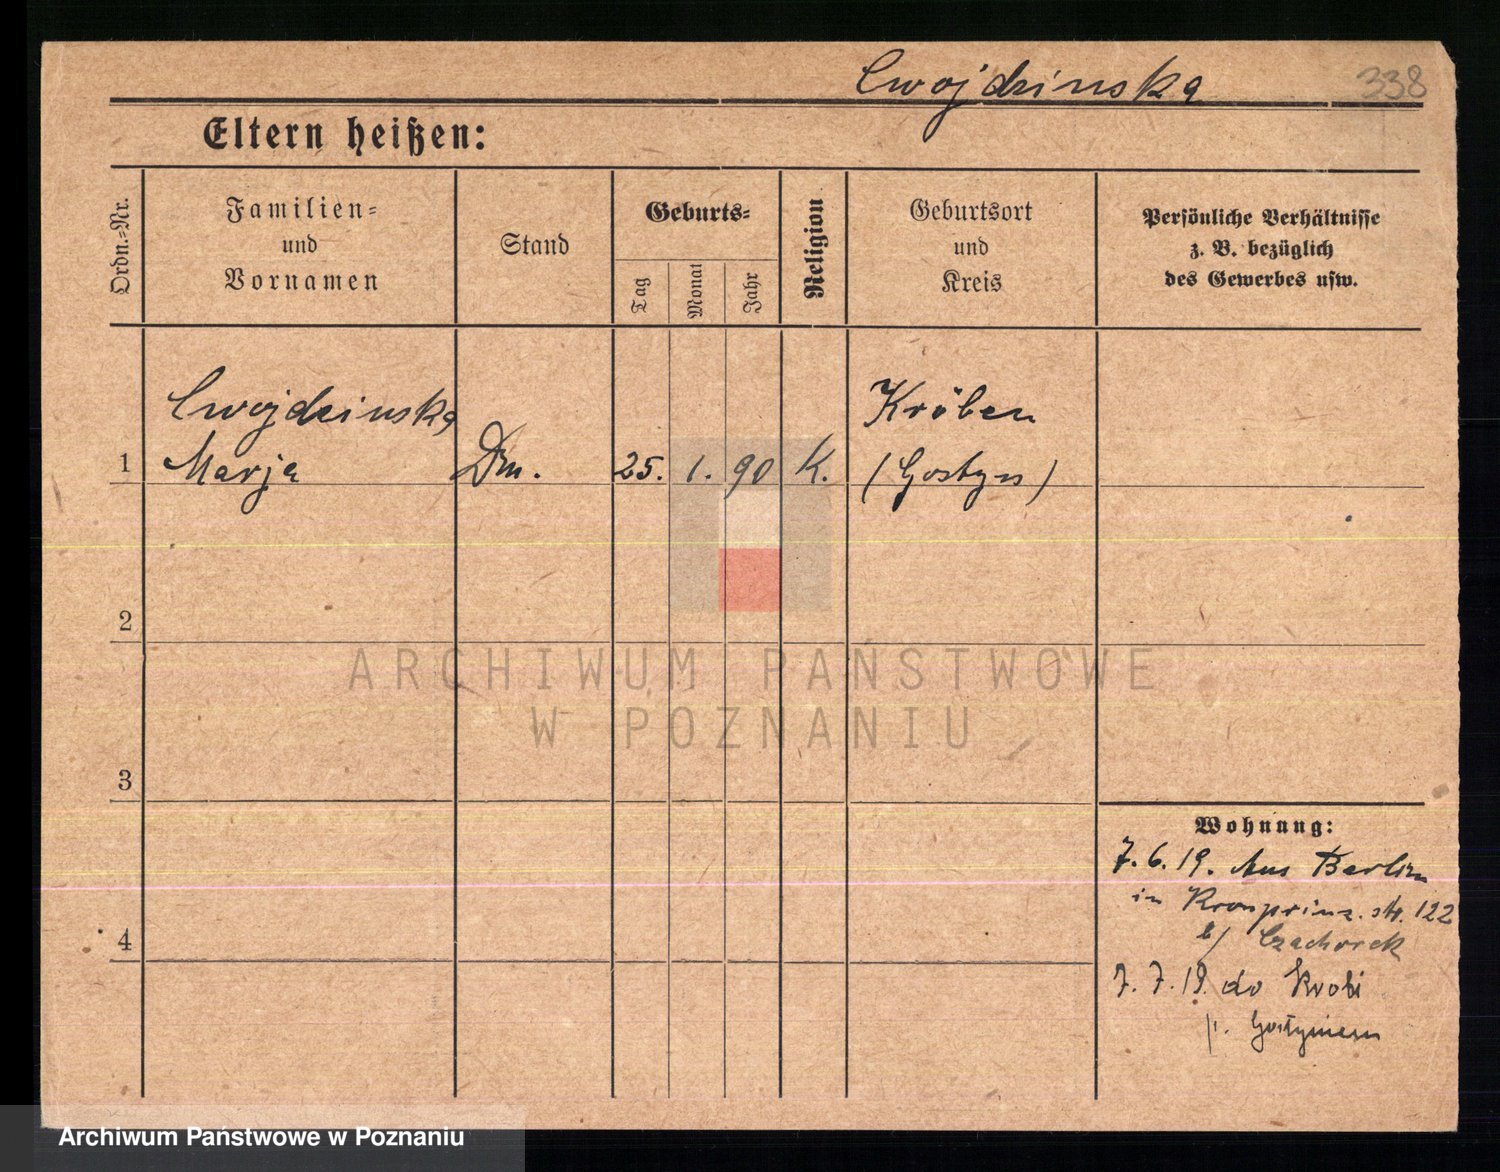 Cwojdzinska 338
Eltern heißen:
Ordn.=Nr.
Familien=
und
Vornamen
Stand
Geburts=
Tag
Monat
Jahr
Religion
Geburtsort
und
Kreis
Persönliche Verhältnisse
z. B. bezüglich
des Gewerbes usw.
Cwojdzinska
Marja
Kröben
(Gostyn)
1 Dm. 25. 1. 90 K.
2
3
4
Wohnung:
7. 6. 19. Aus Berlin
in Kronprinz. str. 122
b/ Czachorek
7. 7. 19. do Krobi
p. Gostyniem
ARCHIWUM PAŃSTWOWE
W POZNANIU
Archiwum Państwowe w Poznaniu